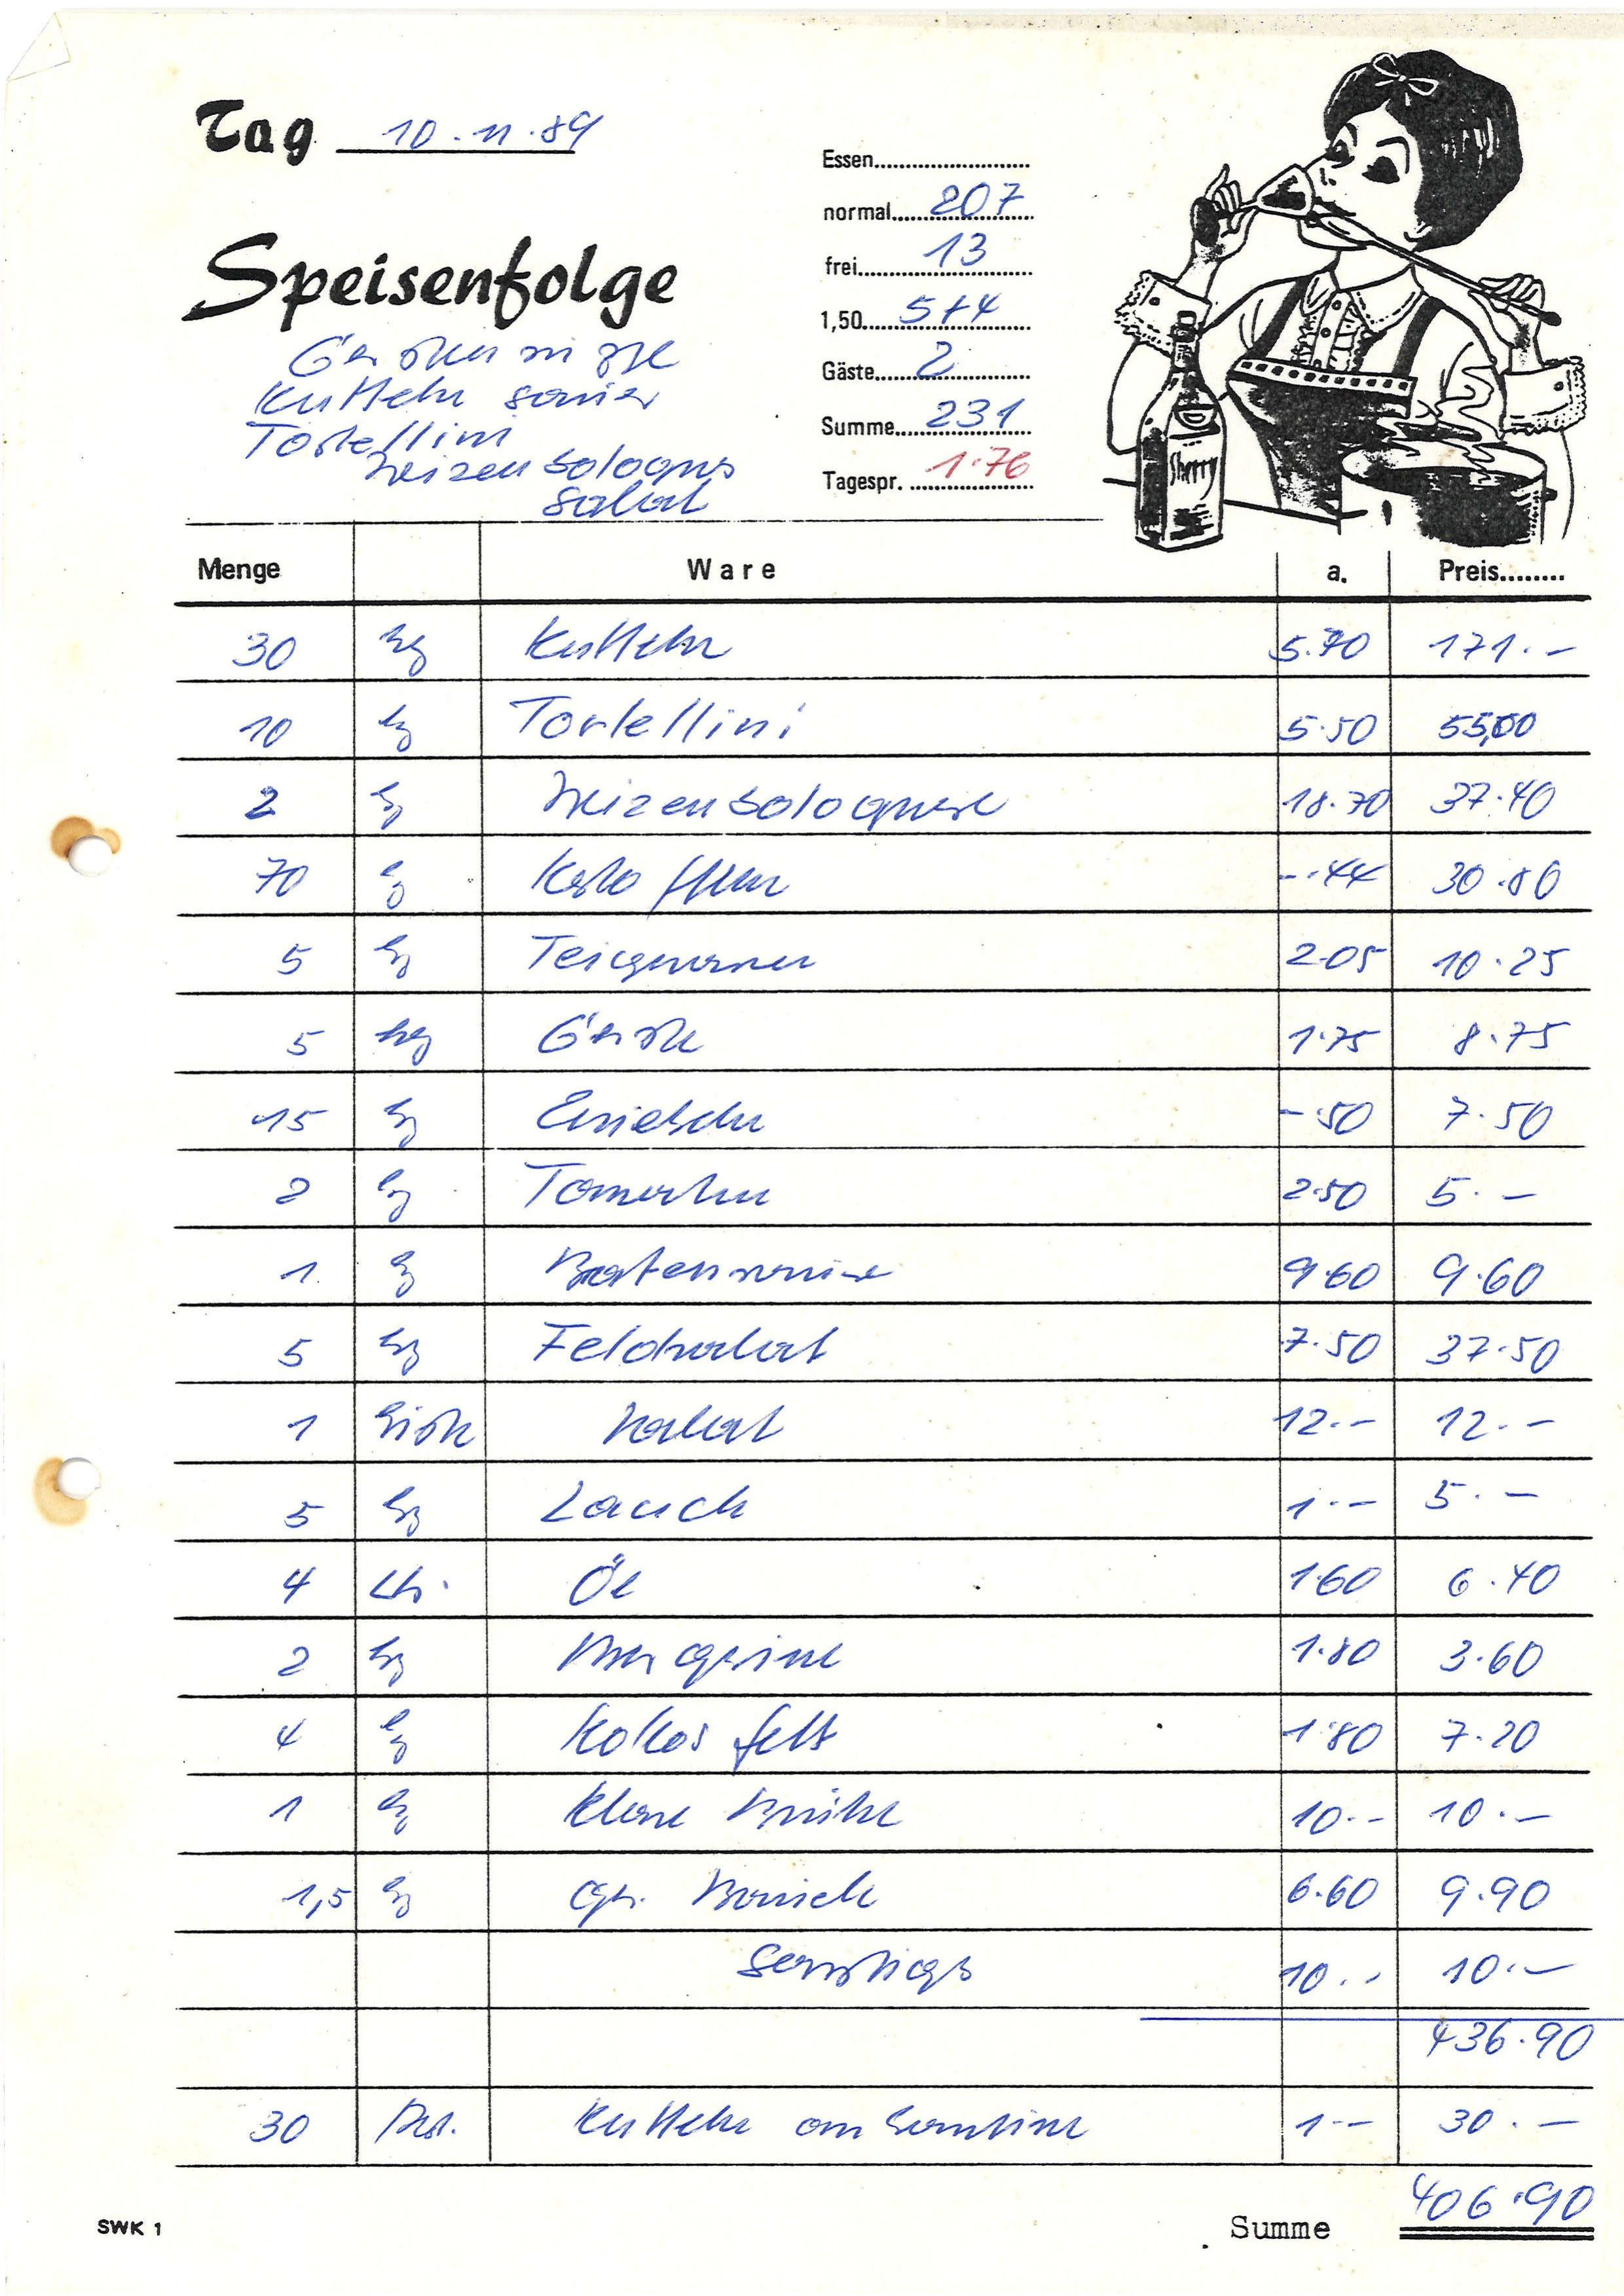 Tag 10.11.89
Essen
normal 207
frei 13
1,50 5+4
Gäste 2
Summe 231
Tagespr. 1.76
Speisenfolge
Kutteln sauer
Tortellini
Weizenbologness
Salat
Sherry
Menge Ware a. Preis
30 kg Kutteln 5.70 171.-
10 kg Tortellini 5.50 55,00
2 kg Weizenbolognese 18.70 37.40
70 kg Kartoffeln -.44 30.80
5 kg Teigwaren 2.05 10.25
5 kg Grieße 1.75 8.75
15 kg Zwiebeln -.50 7.50
2 kg Tomaten 2.50 5.-
1 kg Bratensauce 9.60 9.60
5 kg Feldsalat 7.50 37.50
1 Kiste Salat 12.- 12.-
5 kg Lauch 1.- 5.-
4 Ltr. Öl 1.60 6.40
2 kg Margarine 1.80 3.60
4 kg Kokosfett 1.80 7.20
1 kg Klare Brühe 10.- 10.-
1,5 kg 6.60 9.90
Sonstiges 10.- 10.-
436.90
30 Port. Kutteln an Kantine 1.- 30.-
SWK 1 Summe 406.90